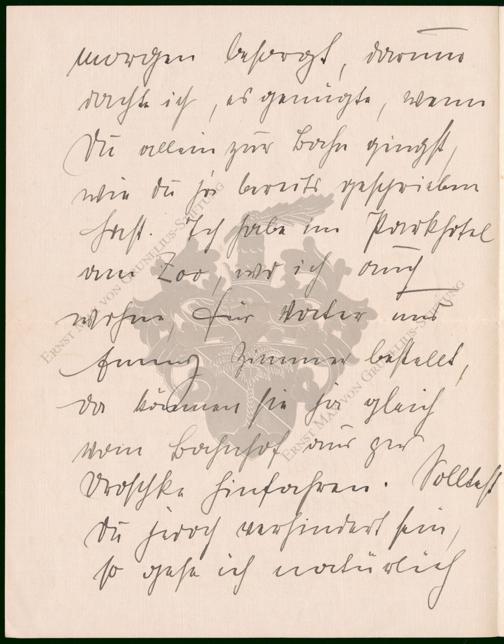 morgen besorgt, darum
dachte ich, es genügte, wenn
Du allein zur Bahn gingst,
wie Du ja bereits geschrieben
hast. Ich habe im Parkhotel
am Zoo, wo ich auch
wohne, für Vater und
Zimmer bestellt,
da können sie ja gleich
vom Bahnhof aus per
Droschke hinfahren. Solltest
Du jedoch verhindert sein,
so gehe ich natürlich
ERNST MAX VON GRUNELIUS-STIFTUNG
ERNST MAX VON GRUNELIUS-STIFTUNG